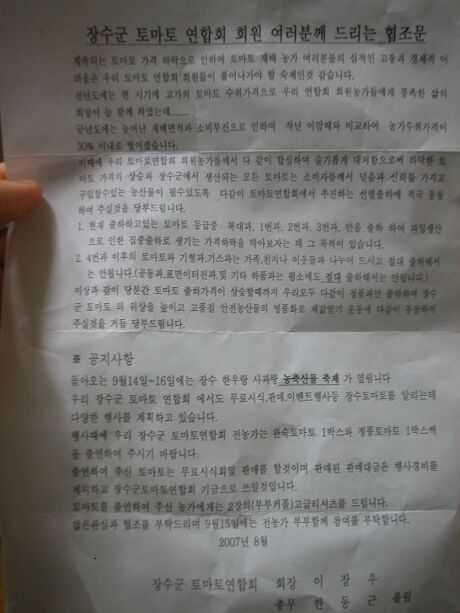 장수군 토마토 연합회 회원 여러분께 드리는 협조문
계속되는 토마토 가격 하락으로 인하여 토마토 재배 농가 여러분들의 심적인 고통과 경제적 어
려움은 우리 토마토 연합회 회원들이 풀어나가야 할 숙제인것 같습니다.
전년도에는 현 시기에 고가의 토마토 수취가격으로 우리 연합회 회원농가들에게 풍족한 삶의
희망이 늘 함께 하였는데........
금년도에는 늘어난 재배면적과 소비부진으로 인하여 작년 이맘때와 비교하여 농가수취가격이
30% 이내로 떨어졌습니다.
이때에 우리 토마토연합회 회원농가들께서 다 같이 합심하여 슬기롭게 대처함으로써 하락한 토
마토 가격의 상승과 장수군에서 생산되는 모든 토마토는 소비자들께서 믿음과 신뢰를 가지고
구입할수있는 농산물이 될수있도록 다같이 토마토연합회에서 추진하는 선별출하에 적극 동참
하여 주실것을 당부드립니다.
1. 현재 출하하고있는 토마토 등급중 특대과, 1번과, 2번과, 3번과, 만을 출하 하여 과잉생산
으로 인한 집중출하로 생기는 가격하락을 막아보자는 데 그 목적이 있습니다.
2. 4번과 이후의 토마토와 기형과,기스과는 가족,친지나 이웃들과 나누어 드시고 절대 출하해서
는 안됩니다.(공동과,표면이터진과,및 기타 하품과는 평소에도 절대 출하해서는 안됩니다.)
이상과 같이 당분간 토마토 출하가격이 상승할때까지 우리모두 다같이 정품과만 출하하여 장수
군 토마토 의 위상을 높이고 고품질 안전농산물의 명품화로 제값받기 운동에 다같이 동참하여
주실것을 거듭 당부드립니다.
※ 공지사항
돌아오는 9월14일~16일에는 장수 한우랑 사과랑 농축산물 축제 가 열립니다
우리 장수군 토마토 연합회 에서도 무료시식,판매,이벤트행사등 장수토마토를 알리는데
다양한 행사를 계획하고 있습니다.
행사때에 우리 장수군 토마토연합회 전농가는 완숙토마토 1박스와 정품토마토 1박스씩
을 출연하여 주시기 바랍니다.
출연하여 주신 토마토는 무료시식회및 판매를 할것이며 판매된 판매대금은 행사경비를
제외하고 장수군토마토연합회 기금으로 쓰일것입니다.
토마토를 출연하여 주신 농가에게는 2장의(부부커플)고급티셔츠를 드립니다.
많은관심과 협조를 부탁드리며 9월15일에는 전농가 부부함께 참여를 부탁합니다.
2007년 8월
장수군 토마토연합회 회장 이 장 우
총무 한 동 근 올림